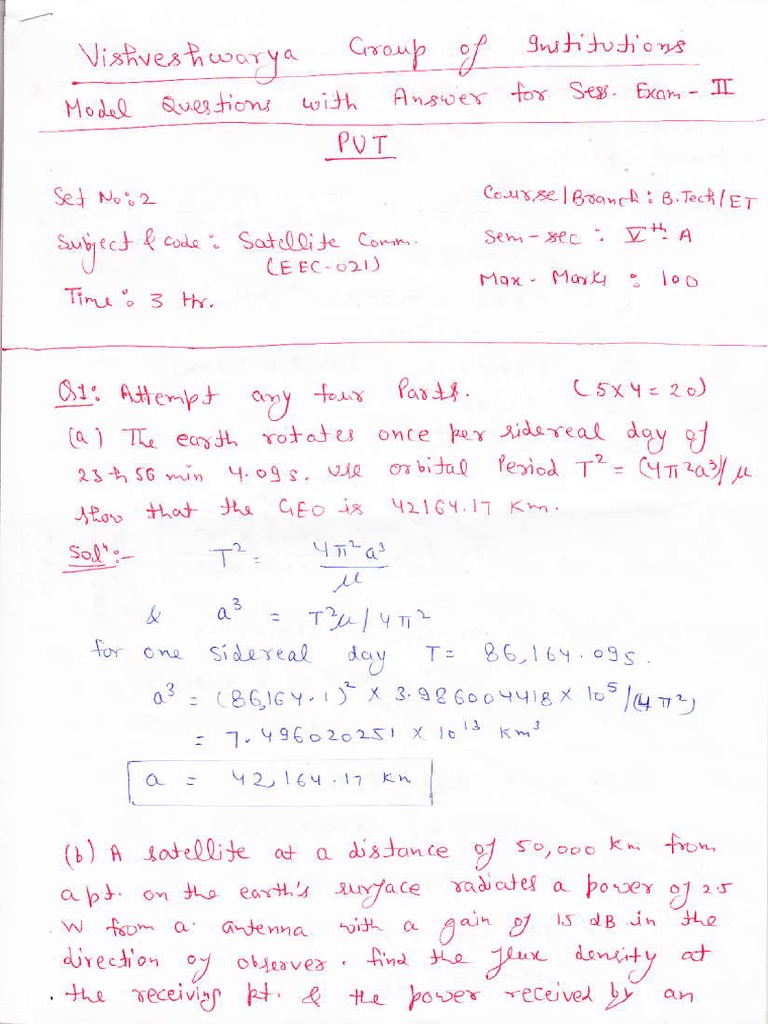 Vishveshwarya Group of Institutions
Model Questions with Answer for Sess. Exam - II
PUT
Set No: 2
Course/Branch: B.Tech/ET
Subject & Code: Satellite Comm.
(EEC-021)
Sem-sec: Vth A
Time: 3 Hr.
Max - Marks: 100
Q1: Attempt any four Parts. (5X4=20)
(a) The earth rotates once per sidereal day of
23h 56 min 4.09s. use orbital Period T² = (4π²a³)/μ
show that the GEO is 42164.17 Km.
Solⁿ:- T² = 4π²a³/μ
& a³ = T²μ/4π²
for one sidereal day T= 86,164.09s.
a³ = (86,164.1)² X 3.986004418 X 10⁵/(4π²)
= 7.496020251 X 10¹³ Km³
a = 42,164.17 Km
(b) A satellite at a distance of 50,000 Km from
a pt. on the earth's surface radiates a power of 25
W from a antenna with a gain of 15 dB in the
direction of observer. find the flux density at
the receiving pt. & the power received by an